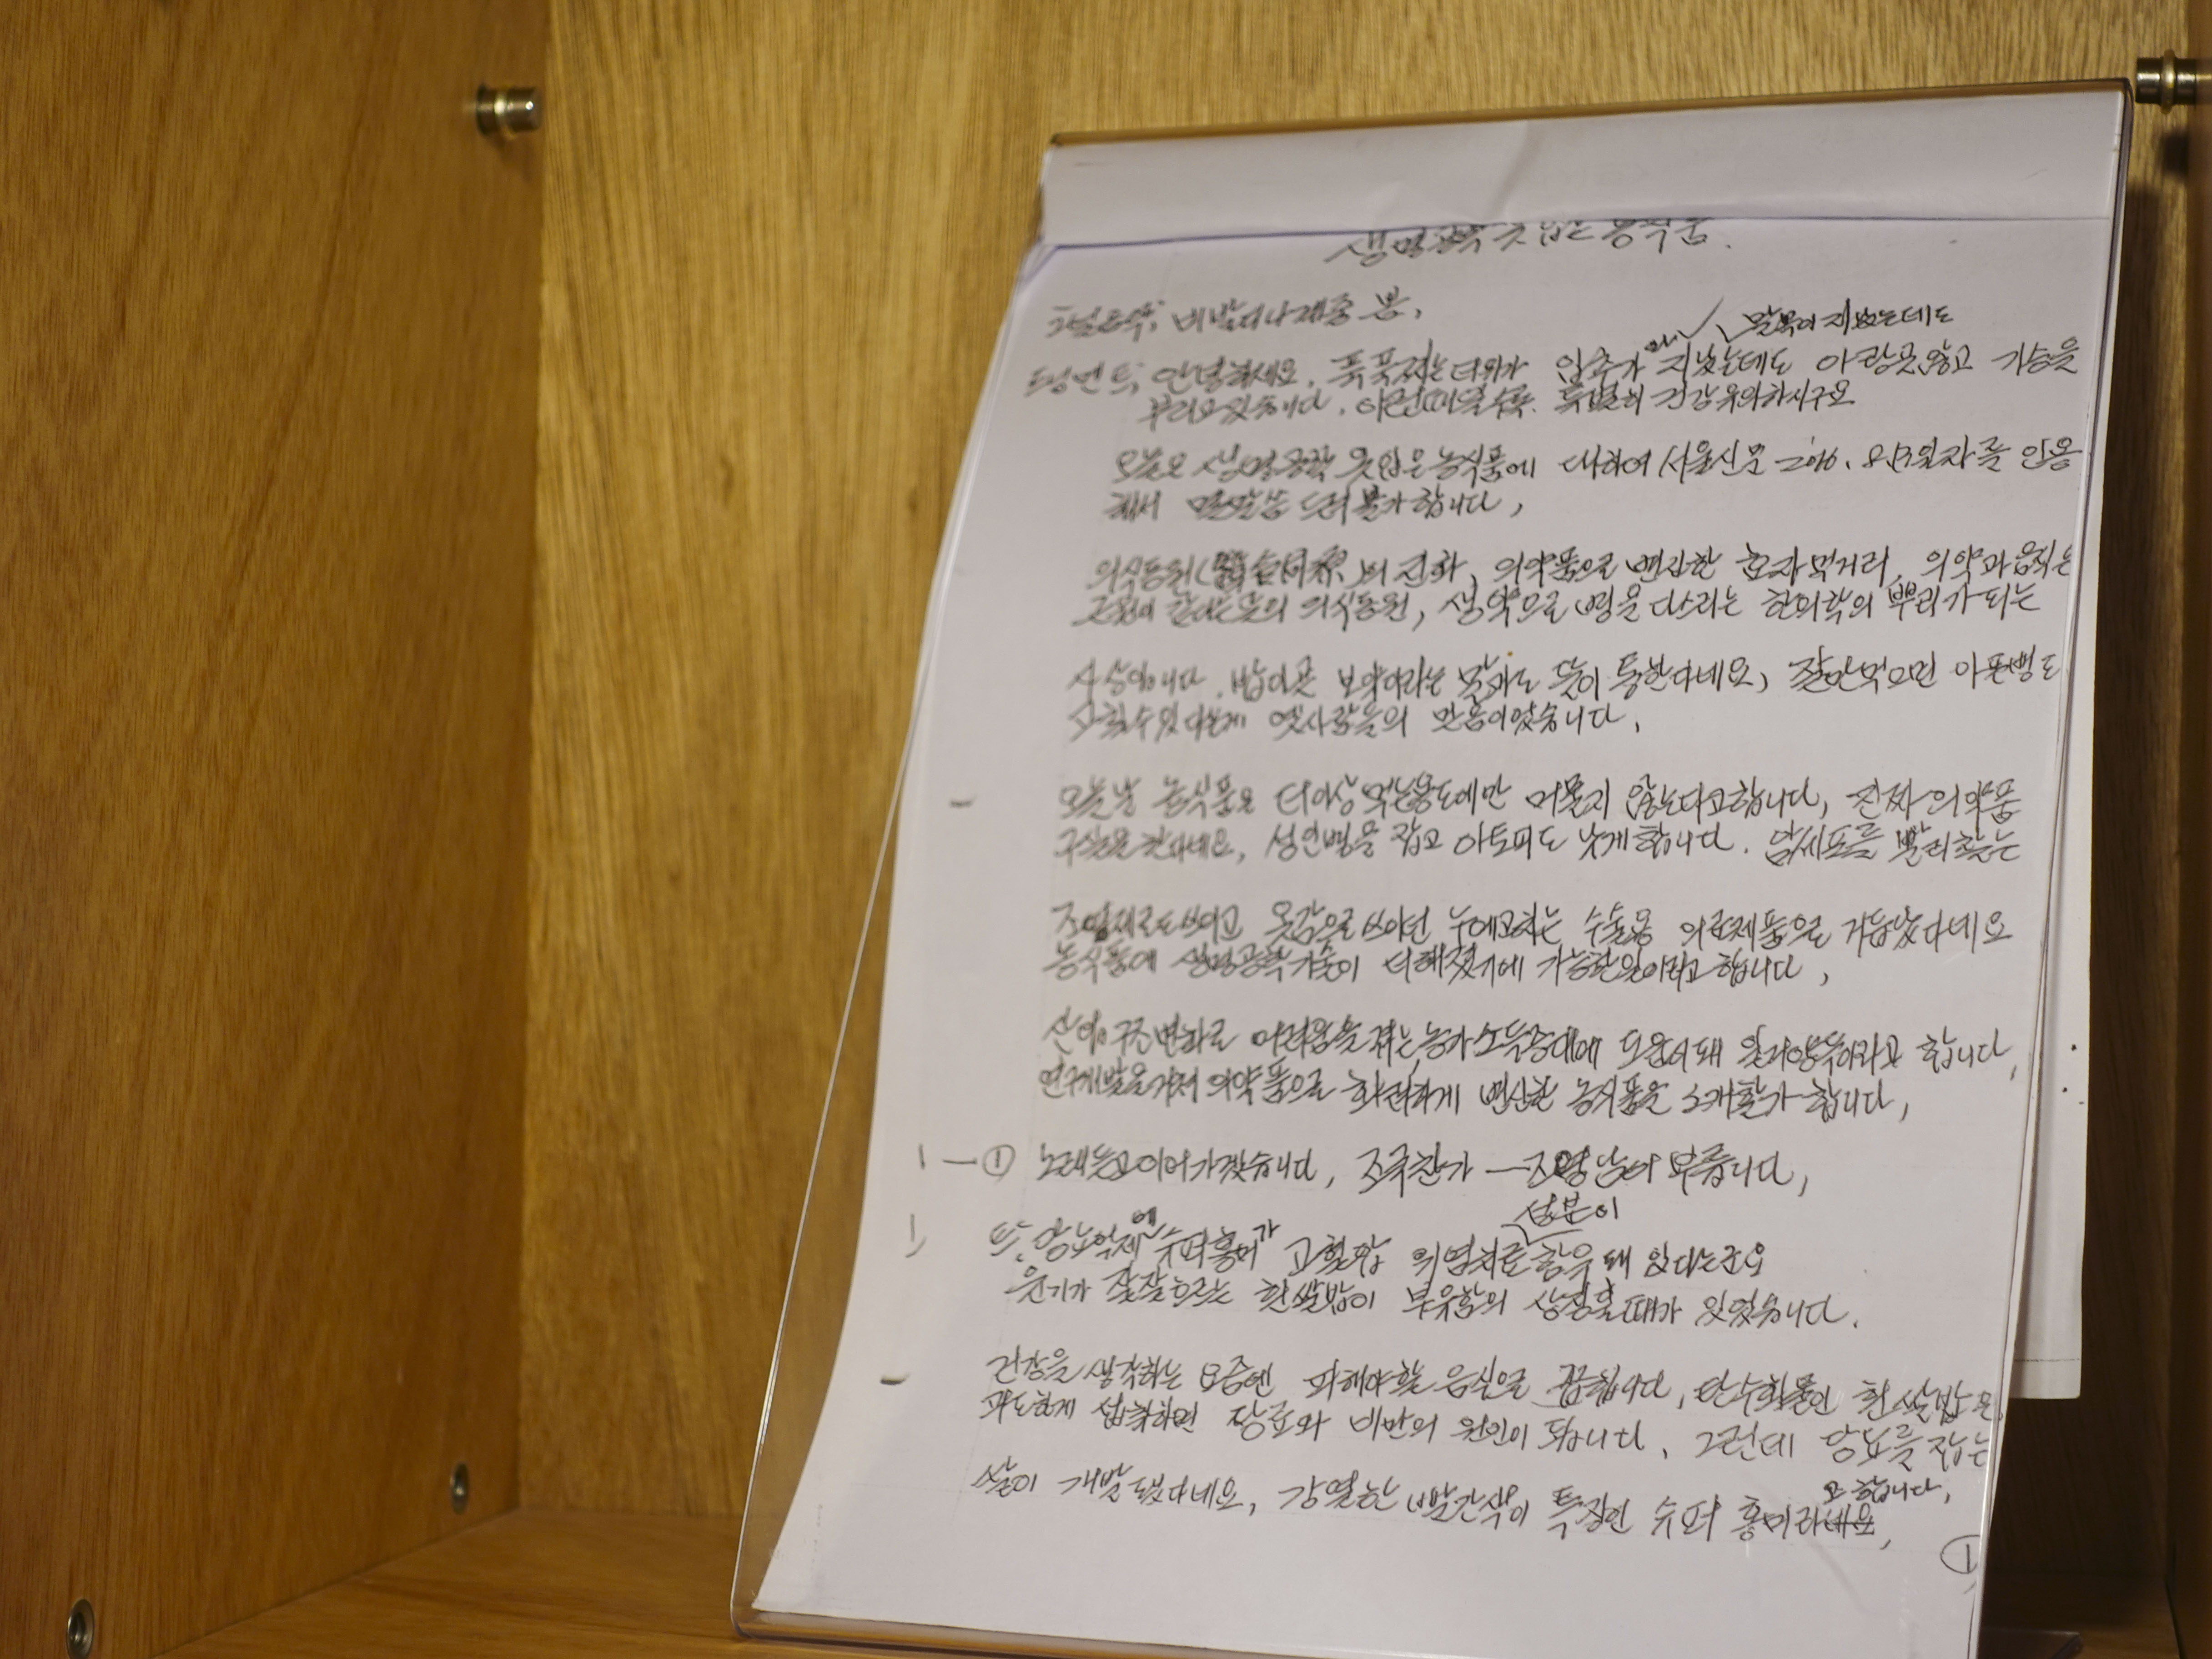 생명공학 옷 입은 농식품.
시그널음악; 비발디 사계중 봄.
말복이 지났는데도
오프닝멘트; 안녕하세요. 푹푹찌는 더위가 입추가 지났는데도 아랑곳않고 기승을
부리고있습니다. 이런때일수록. 특별히 건강유의하시구요
오늘은 생명공학 옷입은 농식품에 대하여 서울신문 2016. 8.13일자를 인용
해서 말씀 드려 볼가 합니다,
의식동원(醫食同源)의 진화, 의약품으로 변신한 효자먹거리, 의약과 음식은
근원이 같다는 뜻의 의식동원, 생약으로 병을 다스리는 한의학의 뿌리가 되는
사상입니다. 밥이곧 보약이라는 말과도 뜻이 통한다네요, 잘만먹으면 아픈병도
고칠수있다는게 옛사람들의 믿음이었습니다.
오늘날 농식품은 더이상 먹는용도에만 머물지 않는다고합니다, 진짜 의약품
구실을 한다네요, 성인병을 잡고 아토피도 낫게합니다. 암세포를 빨리찾는
조영제로도쓰이고 옷감으로 쓰이던 누에고치는 수술용 의료제품으로 거듭났다네요
농식품에 생명공학기술이 더해졌기에 가능한일이라고 합니다,
산업구조변화로 어려움을 겪는 농가소득증대에 도움이돼 일거양득이라고 합니다,
연구개발을거쳐 의약품으로 화려하게 변신한 농식품을 소개할가 합니다,
1 — ① 노래듣고 이어가겠습니다, 조국찬가 — 조영남이 부릅니다,
성분이
1) 또, 당뇨억제에 수퍼홍미가 고혈압 위염치료 함유돼 있다는군요
윤기가 잘잘흐르는 흰쌀밥이 부유함의 상징일때가 있었습니다.
건강을 생각하는 요즘엔 피해야할 음식으로 꼽힙니다, 탄수화물인 흰쌀밥은
과도하게 섭취하면 당뇨와 비만의 원인이 됩니다. 그런데 당뇨를 잡는
고 합니다,
쌀이 개발됐다네요, 강열한 빨간색이 특징인 수퍼 홍미라네요,
①